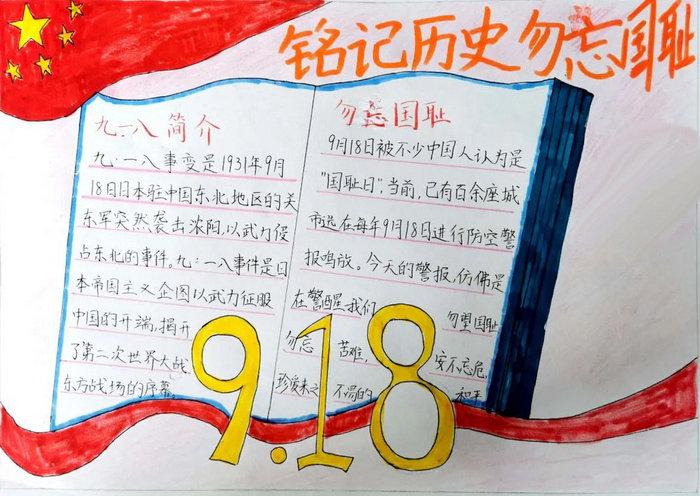 铭记历史勿忘国耻
九·一八简介
九·一八事变是1931年9月
18日日本驻中国东北地区的关
东军突然袭击沈阳,以武力侵
占东北的事件。九·一八事件是日
本帝国主义企图以武力征服
中国的开端,揭开
了第二次世界大战
东方战场的序幕。
勿忘国耻
9月18日被不少中国人认为是
"国耻日"。当前,已有百余座城
市选在每年9月18日进行防空警
报鸣放。今天的警报,仿佛是
在警醒我们
勿忘国耻
勿忘 苦难, 安不忘危,
珍爱来之 不易的 和平
9.18